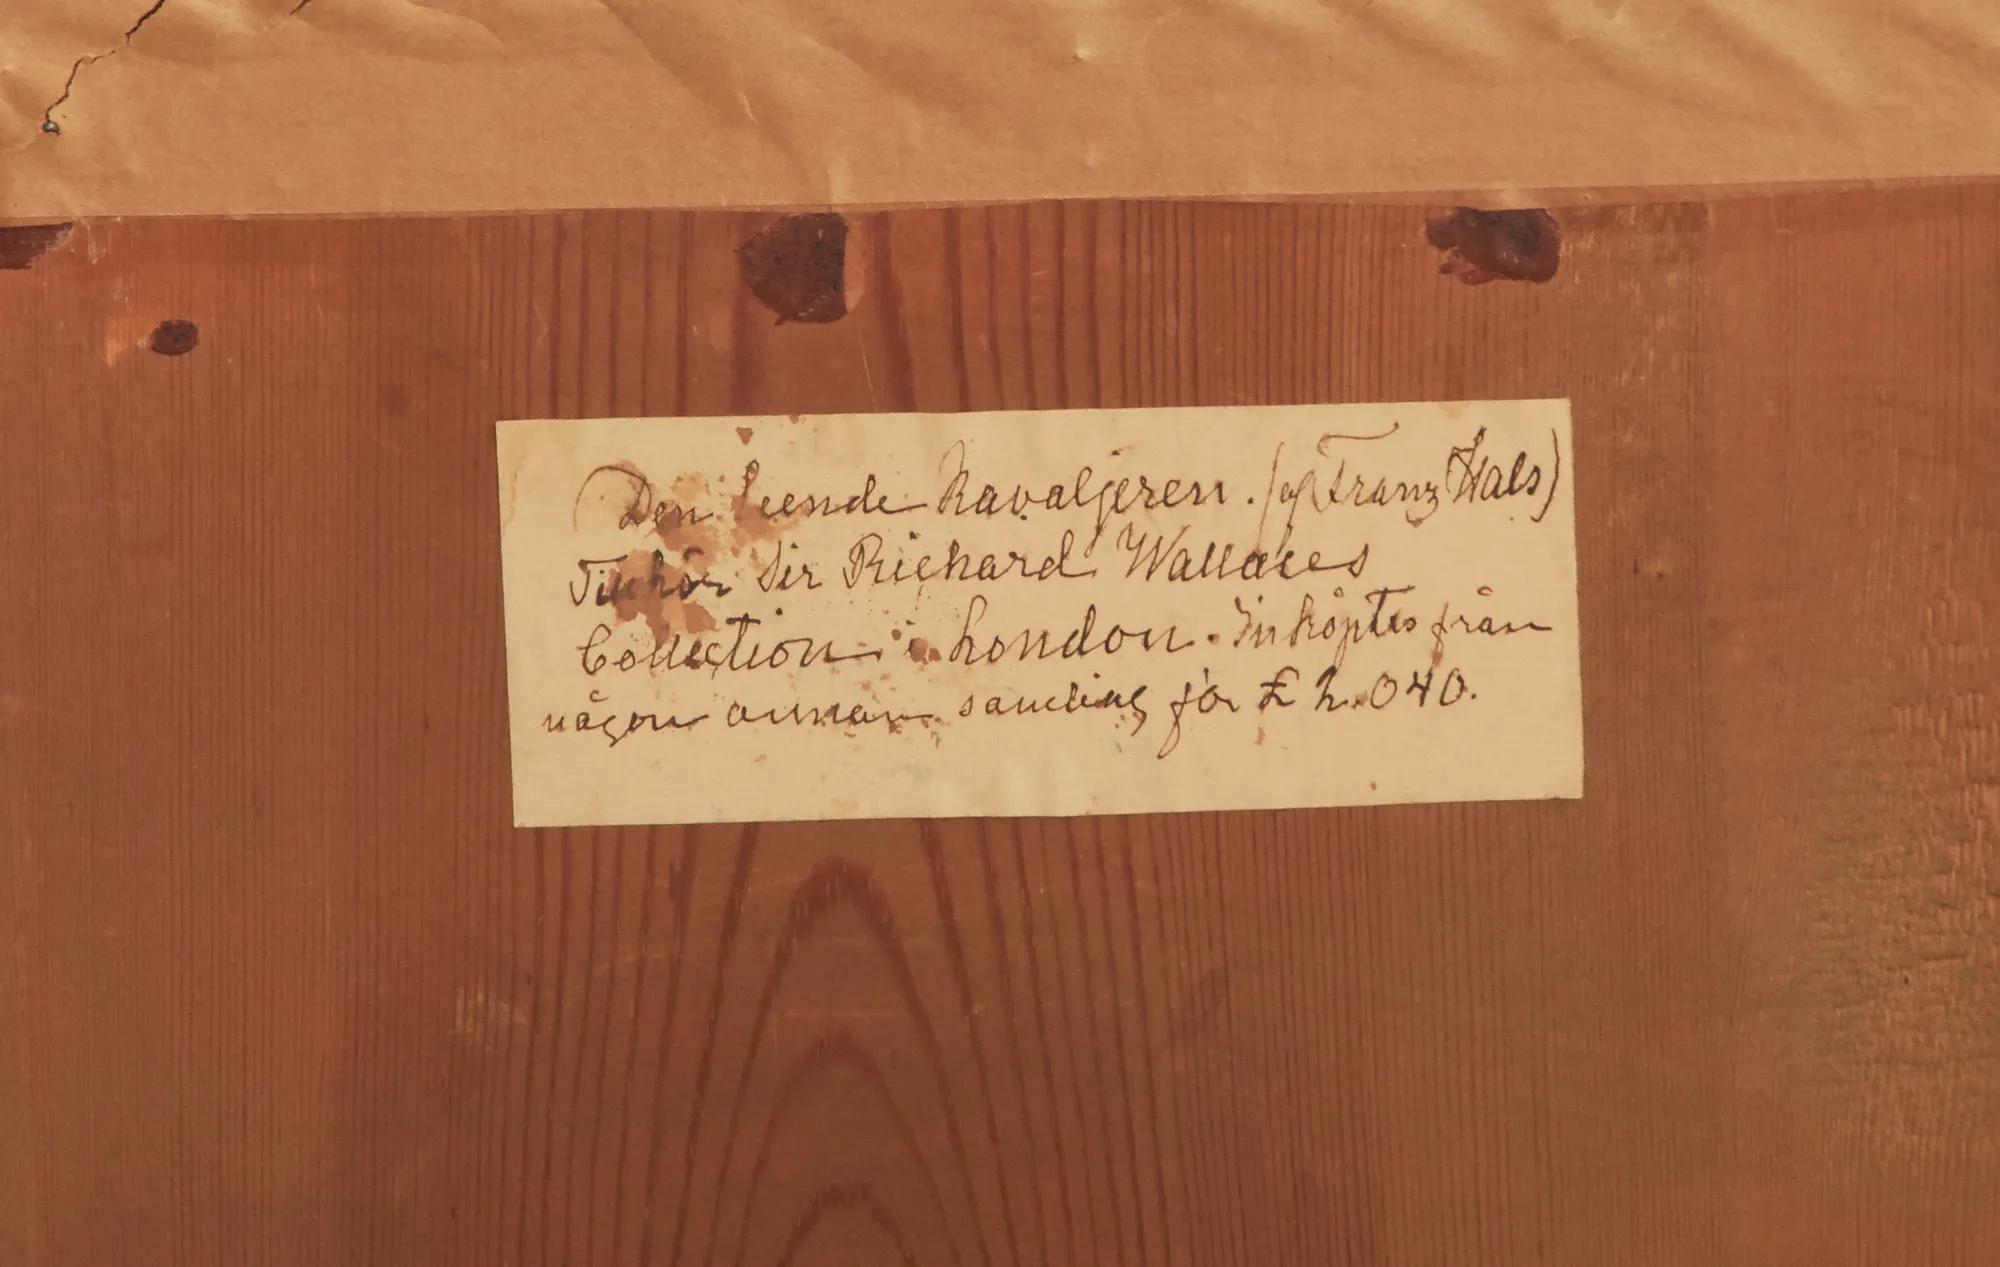 Den leende Kavaljeren. (af Franz Hals)
Tillhör Sir Richard Wallaces
Collection i London. Inköptes från
någon annan samling för £ 2.040.